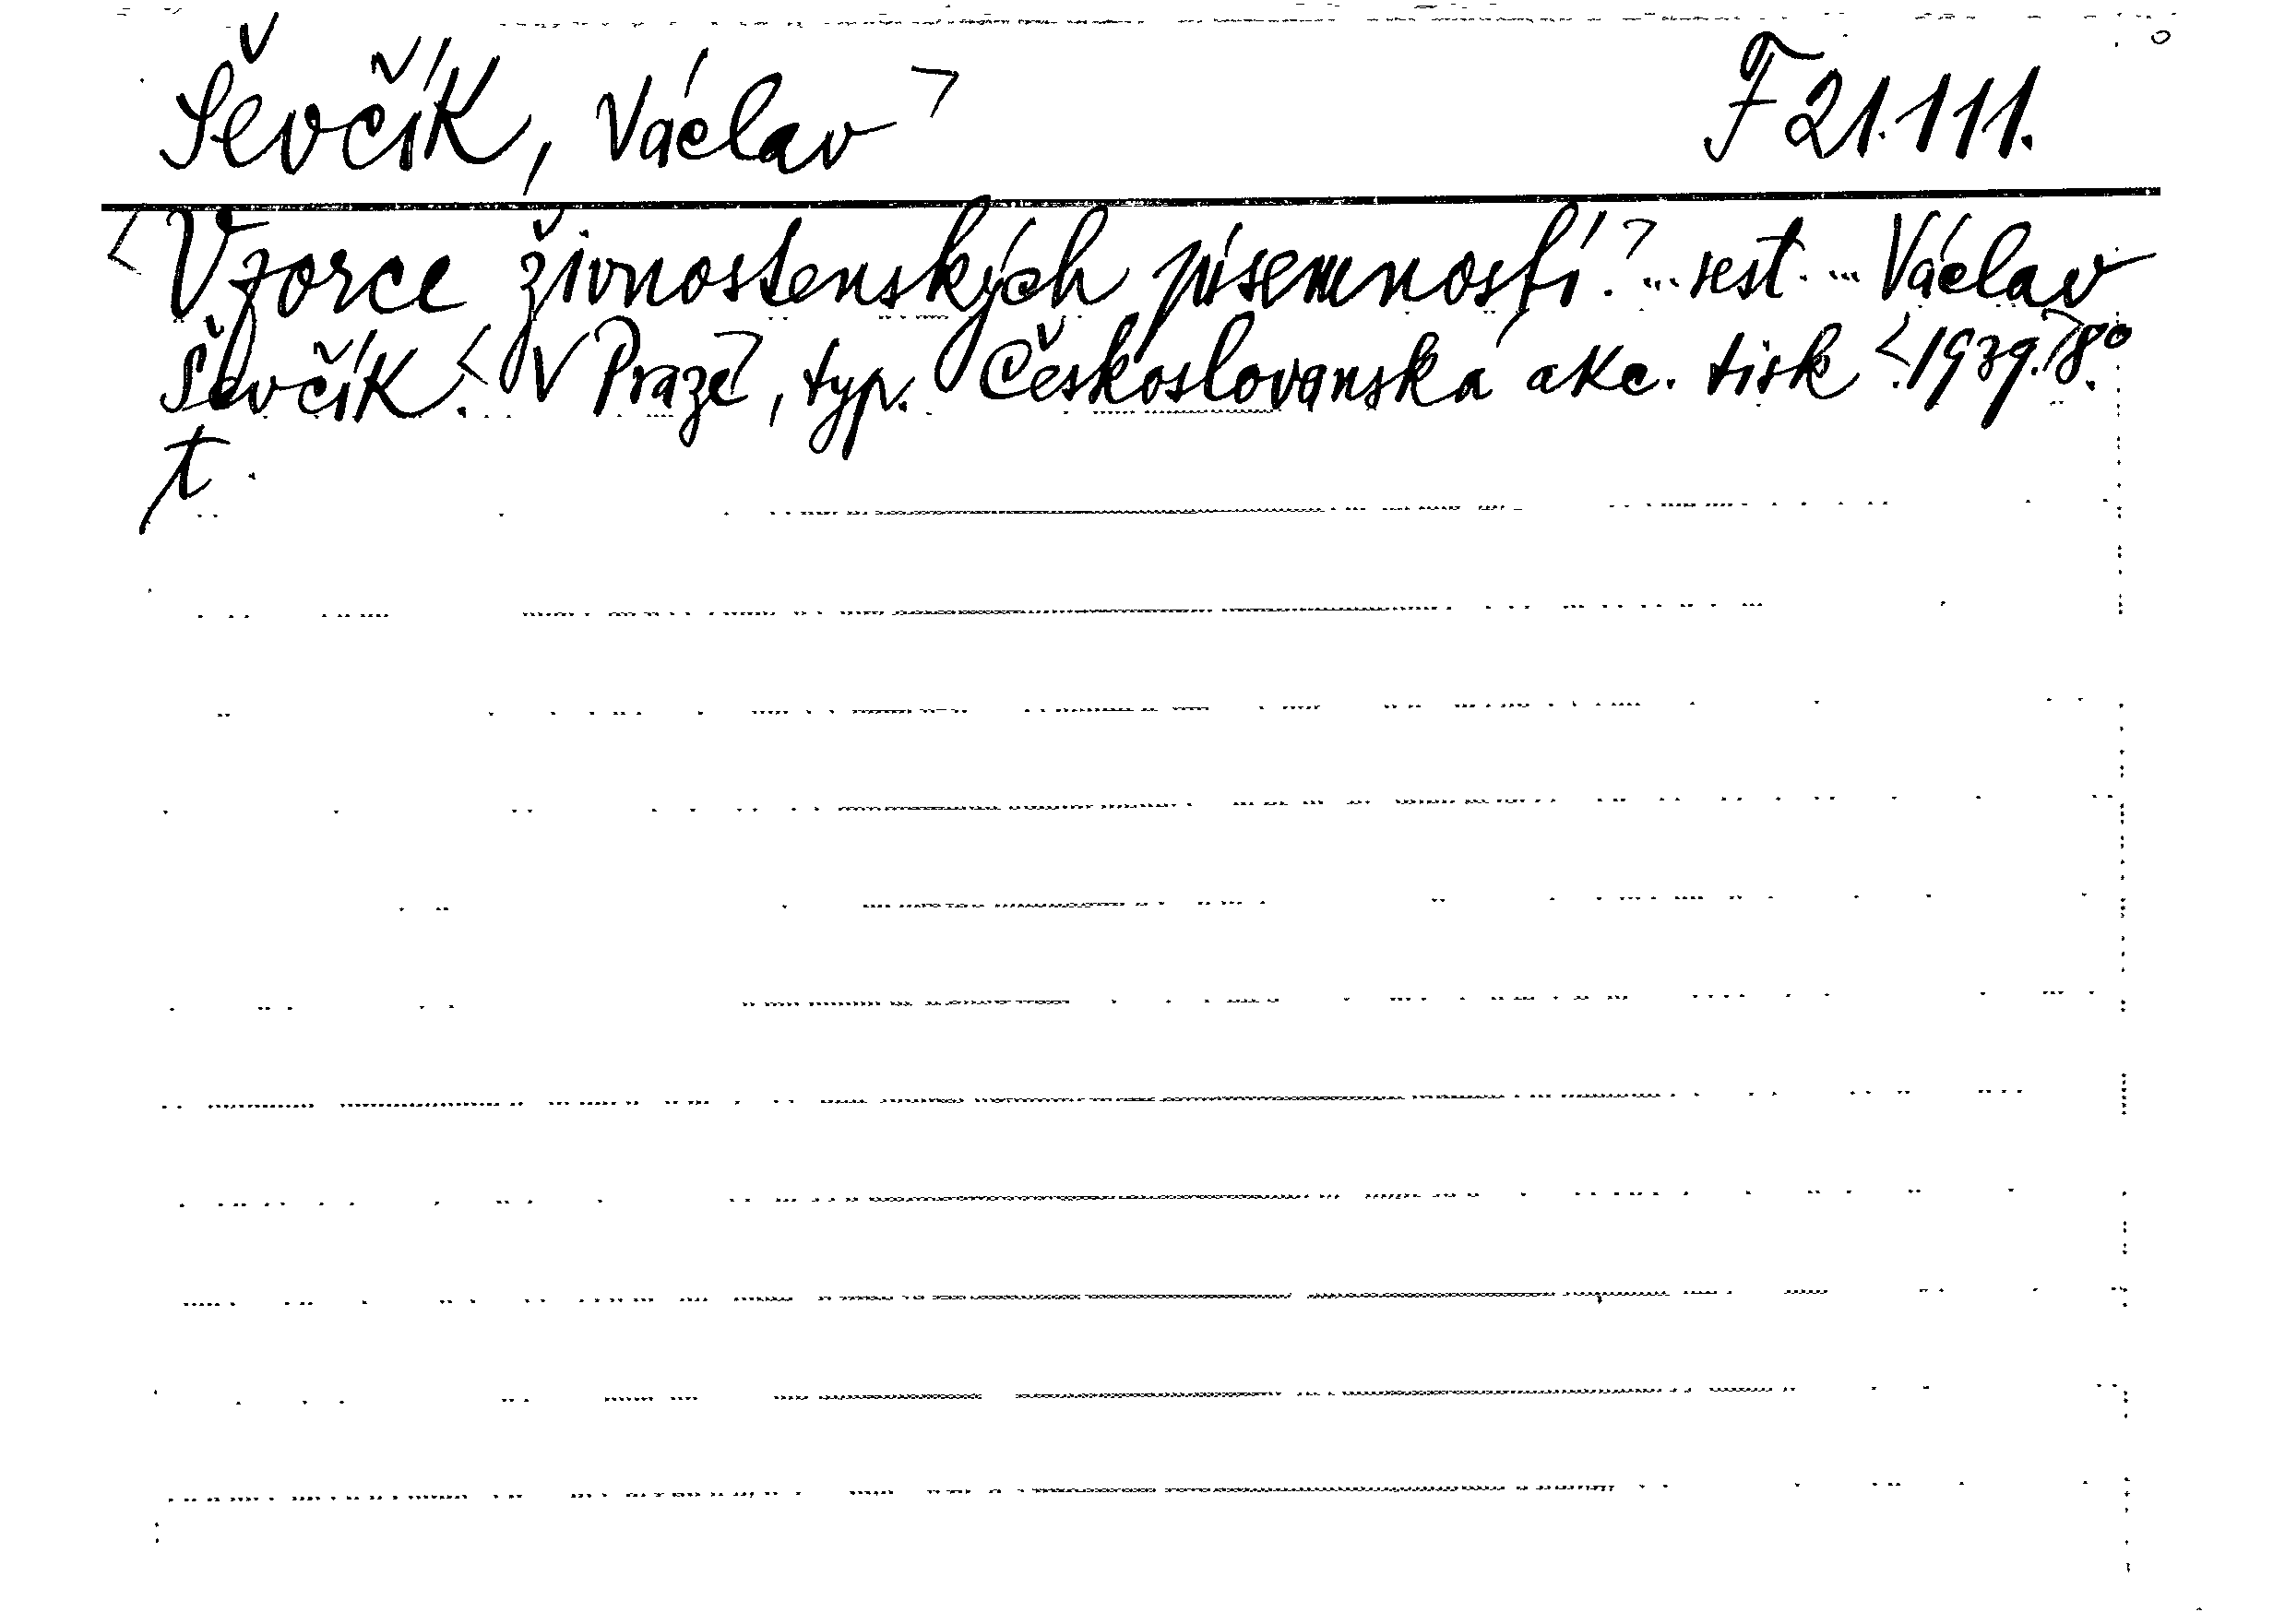 Ševčík, Václav ⌝ F 21.111.
<Vzorce živnostenských písemností.⌝ ... sest. ... Václav
Ševčík.< V Praze⌝, typ. Českoslovanská akc. tisk <.1939.⌝ 8°.
t.